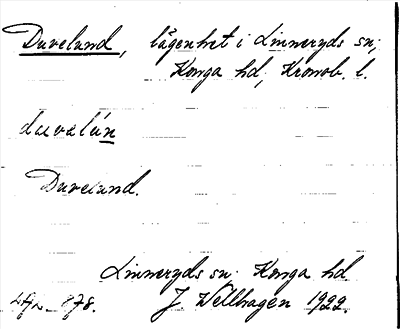 Duvelund, lägenhet i Linneryds sn;
Konga hd, Kronob. l.
duvelún
Duvelund.
Linneryds sn. Konga hd
J. Wellhagen 1922.